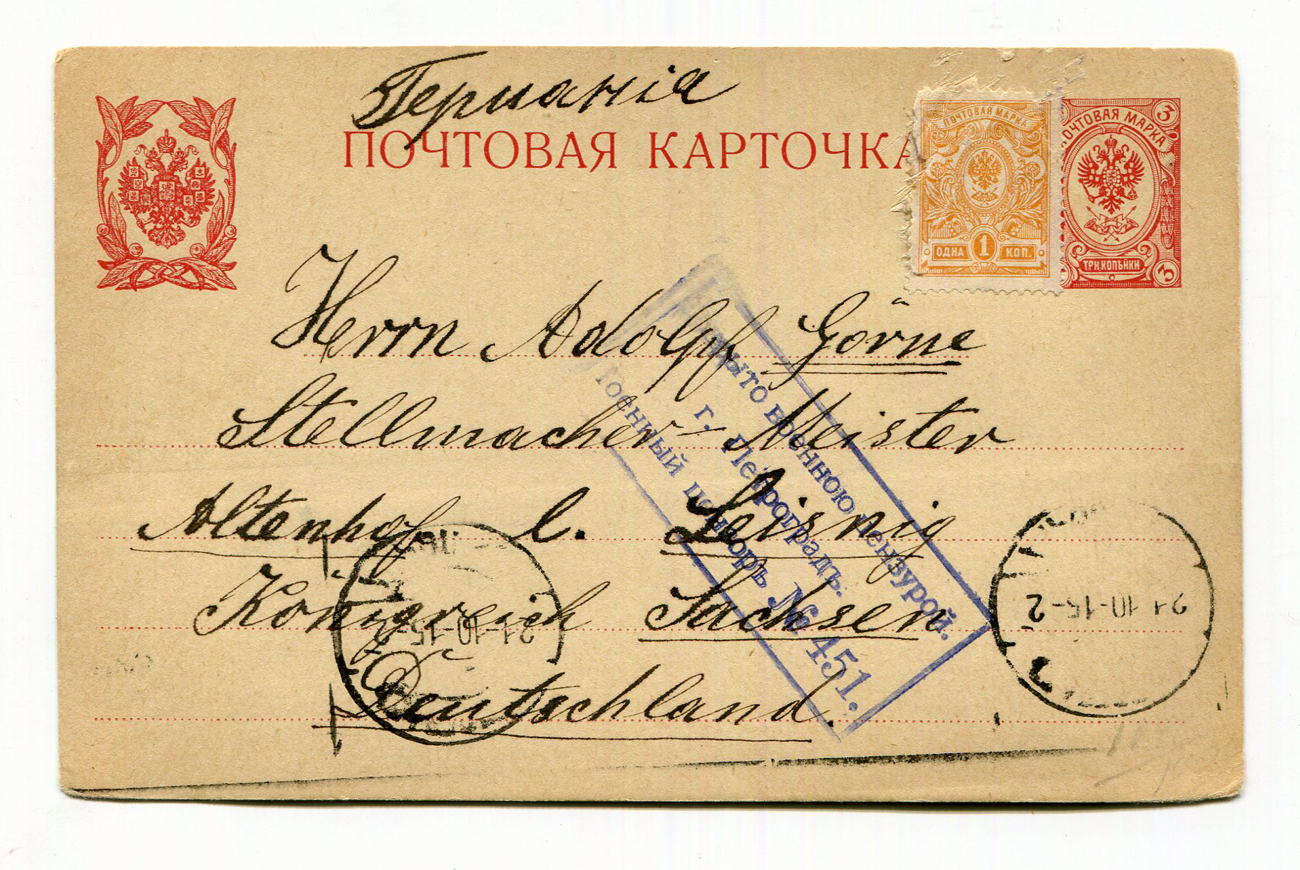 Германія
ПОЧТОВАЯ КАРТОЧКА
ПОЧТОВАЯ МАРКА
ОДНА 1 КОП.
3
ПОЧТОВАЯ МАРКА
ТРИ КОПѢЙКИ
3
Herrn Adolf Görne
Stellmacher-Meister
Altenhof b. Leisnig
Königreich Sachsen
Deutschland.
военною цензурой.
г. Петроградъ.
Военный цензоръ № 451.
21-10-15-2
21-10-15-2